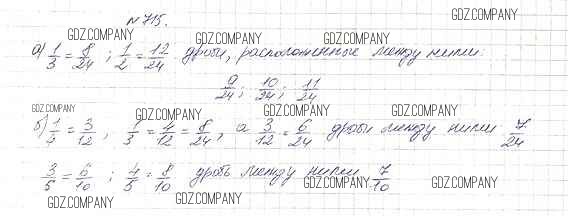 № 715.
GDZ.COMPANY
GDZ.COMPANY GDZ.COMPANY GDZ.COMPANY
а) 1/3 = 8/24 ; 1/2 = 12/24 дроби, расположенные между ними:
9/24 ; 10/24 ; 11/24
GDZ.COMPANY GDZ.COMPANY GDZ.COMPANY GDZ.COMPANY
б) 1/4 = 3/12 , 1/3 = 4/12 = 8/24 , а 3/12 = 6/24 дробь между ними 7/24
3/5 = 6/10 ; 4/5 = 8/10 дробь между ними 7/10
GDZ.COMPANY GDZ.COMPANY GDZ.COMPANY GDZ.COMPANY